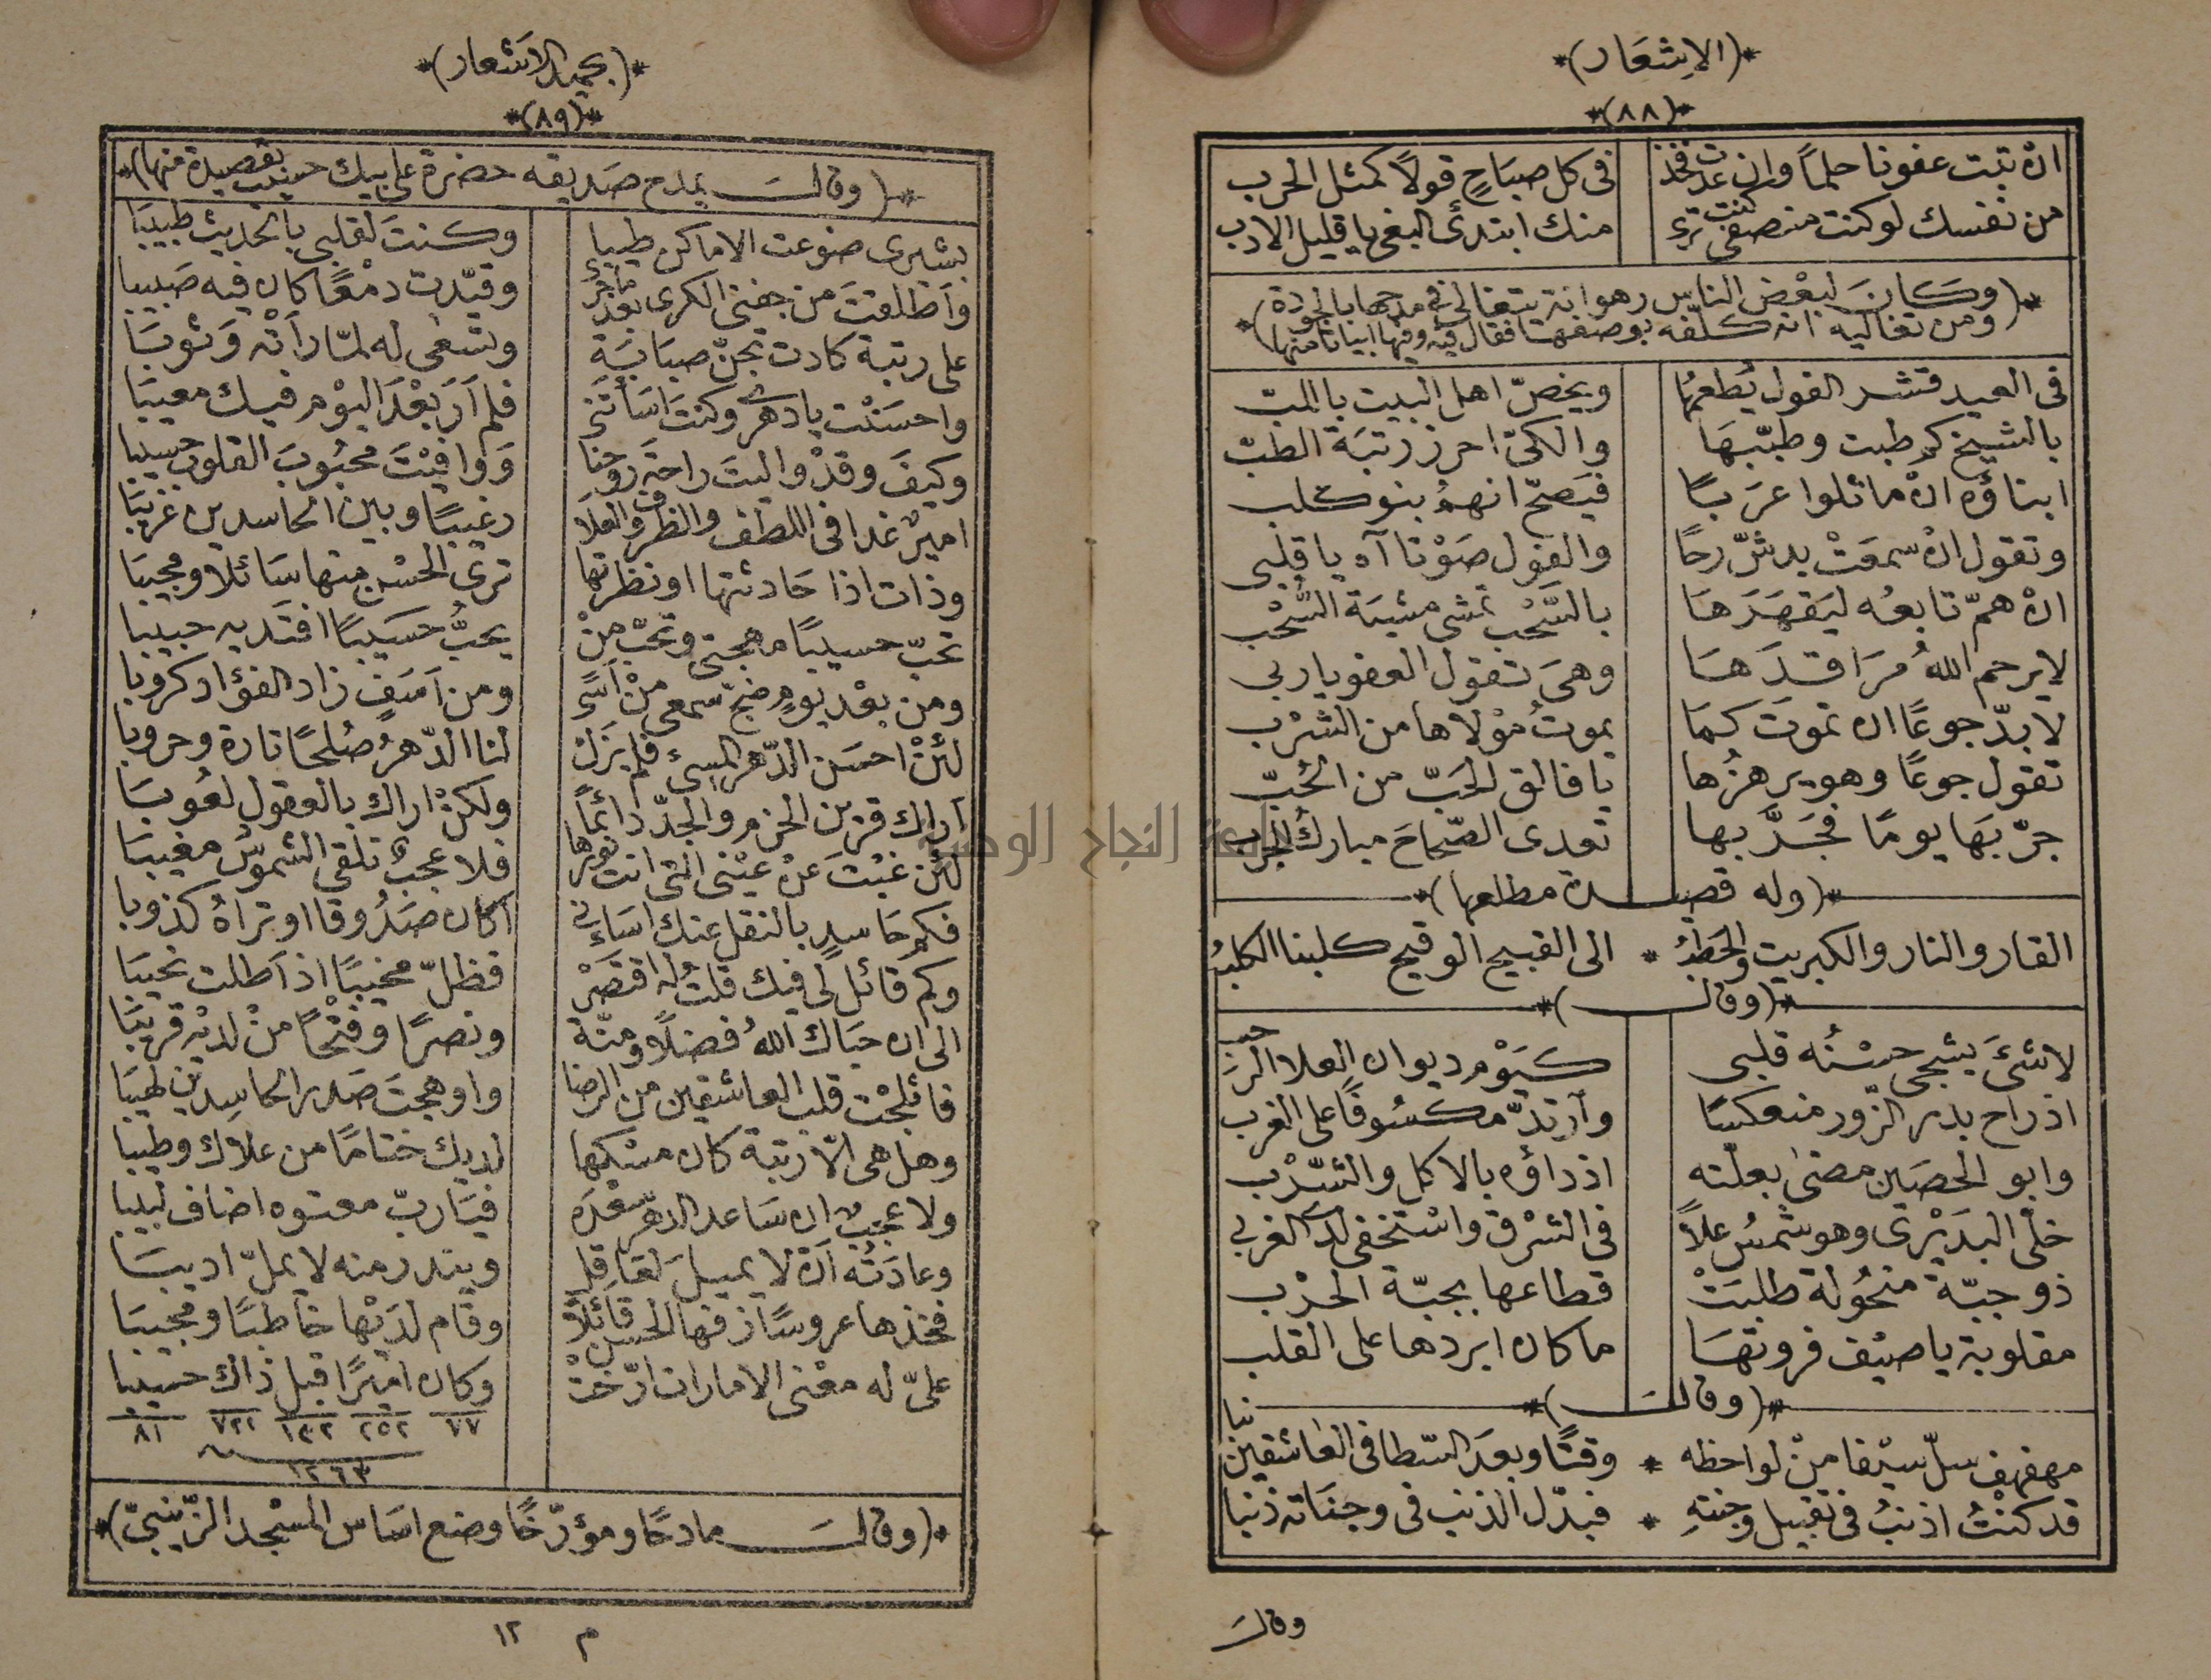 *(الاشعار)*
*(٨٨)*
ان تبت عفونا حلماً وان عدت فخذ في كل صباحٍ قولاً كمثل الحرب
من نفسك لو كنت منصفى كنت ترى منك ابتدئ البغى يا قليل الادب
*(وكان لبعض الناس رهوانة يتغالى في مدحها بالجودة
ومن تغاليه انه كلّفه بوصفها فقال فيه وفيها ابياتا منها)*
في العيد قشر الفول يُطعمُها ويخصّ اهل البيت باللبّ
بالشيخ كم طبت وطبّبهَا والكىّ احرز رتبَة الطبّ
ابناؤه ان ماثلوا عرَبًا فيَصحّ انهمُ بنو كلب
وتقول ان سمعَتْ بدشّ رحًا والفول صَوْتا آه يا قلبى
ان همّ تابعُه ليَقهَرَهَا بالسَّحْب تمشى مشيَة السُّحْب
لا يرحم اللهُ مرَاقدَهَا وهىَ تقول العفو يا ربى
لا بدّ جوعًا ان تموتَ كمَا يموتُ مَوْلاها من الشرْب
تقول جوعًا وهو يرهزُها يا فالق الحَبّ من الحُبّ
جرّبَهَا يومًا فجَدَّ بها تعدى الصّحاحَ مبارك الجرب
*(وله قصيدة مطلعها)*
القار والنار والكبريت والحَطبُ * الى القبيح الوقيح كلبنا الكلبُ
*(وقالَ)*
لا شئَ يشجى حسْنُه قلبى كيَوْم ديوان العلا الرحب
اذ راح بدر الزّور منعكسًا وآرتدّ مكسُوفًا على الغرب
وابو الحصَين مضنى بعلّته اذ داؤه بالاكل والشّرْب
خلّى البدَيْرى وهو شمسُ علاً في الشرق واسْتخفى لدى الغربى
ذو جبّة منحُولة طلبَتْ قطاعها بجبّة الحدْب
مقلوبة يا صيْف فروتهَا ما كان ابردها على القلب
*(وقالَ)*
مهفهف سلّ سيْفا منْ لواحظه * وقتًا وبعدَ السّطا في العاشقين نبا
قد كنتُ اذنبُ في تقبيل وجنتهِ * فبدّل الذنب في وجنَاته ذنبا
وقالَ
*(بحميد الاشعار)*
*(٨٩)*
*(وقالَ يمدح صَديقه حضرة على بيك حسيب بقصيدة منها)*
بشيرى ضوعت الاماكن طيبا وكنتَ لقلبى بالحديث طبيبَا
وأطلقتَ من جفنى الكرى بعد ما جرى وقيّدت دمْعًا كان فيه صَبيبا
على رتبة كادت تجنّ صبَابَة وتسْعى له لمّا رأتْه وَثوبَا
واحسَنْت يا دهرى وكنتَ اسَأتنى فلم أرَ بعْدَ اليوْم فيك معيبَا
وكيفَ وقدْ واليتَ راحة روحنا وَوافيْتَ محبُوبَ القلوب حسيبا
اميرٌ غدا في اللطف والظرف والعلا رغيبًا وبين الحاسدين غريبَا
وذات اذا حَادثتها او نظرتها ترى الحسْن منها سَائلا ومجيبَا
تحبّ حسيبًا مهجتى وتحبّ منْ يحبُّ حسَيبًا افتَديه حبيبا
ومن بعْد يومٍ ضجّ سمعى منْ أسًى ومن أسَفٍ زاد الفؤاد كروبا
لئنْ احسَن الدّهر المسىء فلم يزَلْ لنا الدّهرُ صُلحًا تارة وحروبا
أراك قرين الحزم والجدّ دائماً ولكنْ اراك بالعقول لعُوبَا
لئن غبْتَ عنْ عيْنى التى انت نورها فلا عجبٌ تلقى الشموسُ مغيبَا
فكم حَاسدٍ بالنقل عنك اسَاءنى أكان صَدُوقا او تراهُ كذوبا
وكم قائل لى فيك قلتُ له اقتصَرْ فظلّ مخيبًا اذ أطلت نحيبَا
الى ان حبَاك اللهُ فضلاً ومنّة ونصرًا وفتْحًا منْ لديْه قريبَا
فاثلجْت قلب العاشقين من الرضا واوهجتَ صَدر الحاسِدين لهيبَا
وهل هى الّا رتبة كان مسْكها لديك ختامًا من علاك وطيبا
ولا عجبٌ ان سَاعد الدهر سعْدَه فيَاربّ معتوه اضاف لبيبا
وعادَتُه أنْ لا يميلَ لعَاقِلٍ ويندر منه لا يملّ اديبَا
فخذها عروسًا زفها الحسن قائلاً وقام لدَيْها خاطبًا ومجيبَا
علىّ له معْنى الامارات ارّختْ وكان اميرًا قبل ذاك حسيبا
٧٧ ٢٥٢ ١٣٢ ٧٢١ ٨١
١٢٦٣
*(وقالَ مادحًا ومؤرّخًا وضع اسَاس المسْجد الزّينبىّ)*
م ١٢